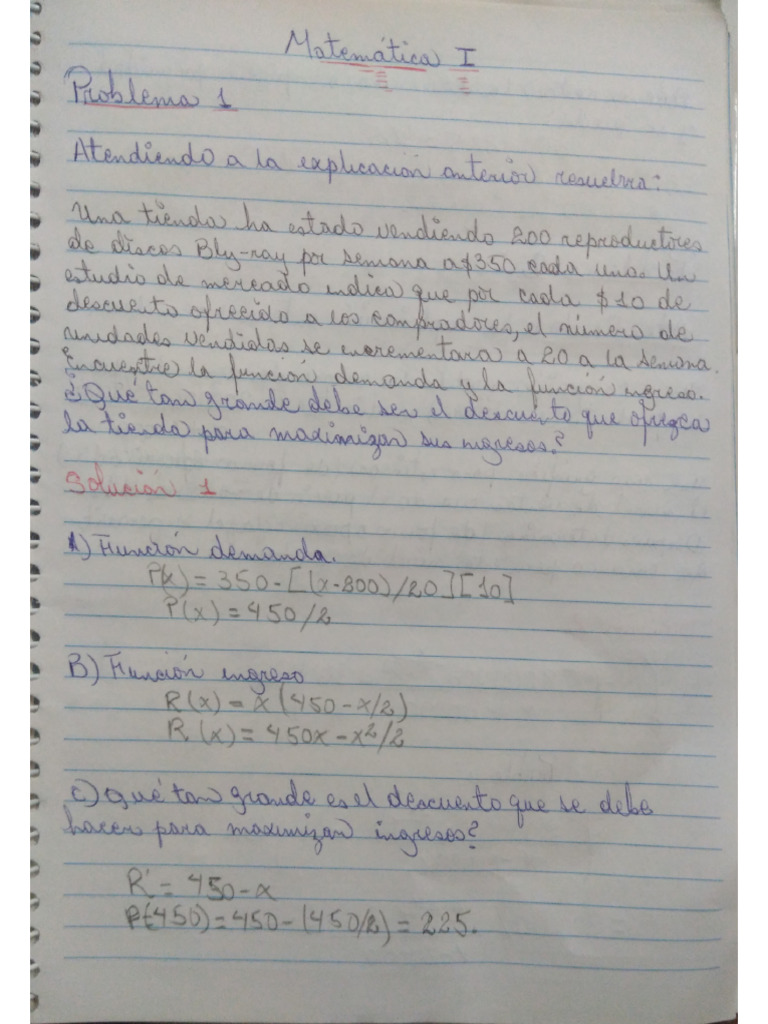 Matemática I
Problema 1
Atendiendo a la explicación anterior resuelva:
Una tienda ha estado vendiendo 200 reproductores
de discos Bly-ray por semana a $350 cada uno. Un
estudio de mercado indica que por cada $10 de
descuento ofrecido a los compradores, el número de
unidades vendidas se incrementara a 20 a la semana.
Encuentre la función demanda y la función ingreso.
¿Qué tan grande debe ser el descuento que ofrezca
la tienda para maximizar sus ingresos?
Solución 1
A) Función demanda.
P(x) = 350 - [(x-800)/20][10]
P(x) = 450/2
B) Función ingreso
R(x) = x(450-x/2)
R(x) = 450x - x²/2
C) Qué tan grande es el descuento que se debe
hacer para maximizar ingresos?
R' = 450 - x
P(450) = 450 - (450/2) = 225.